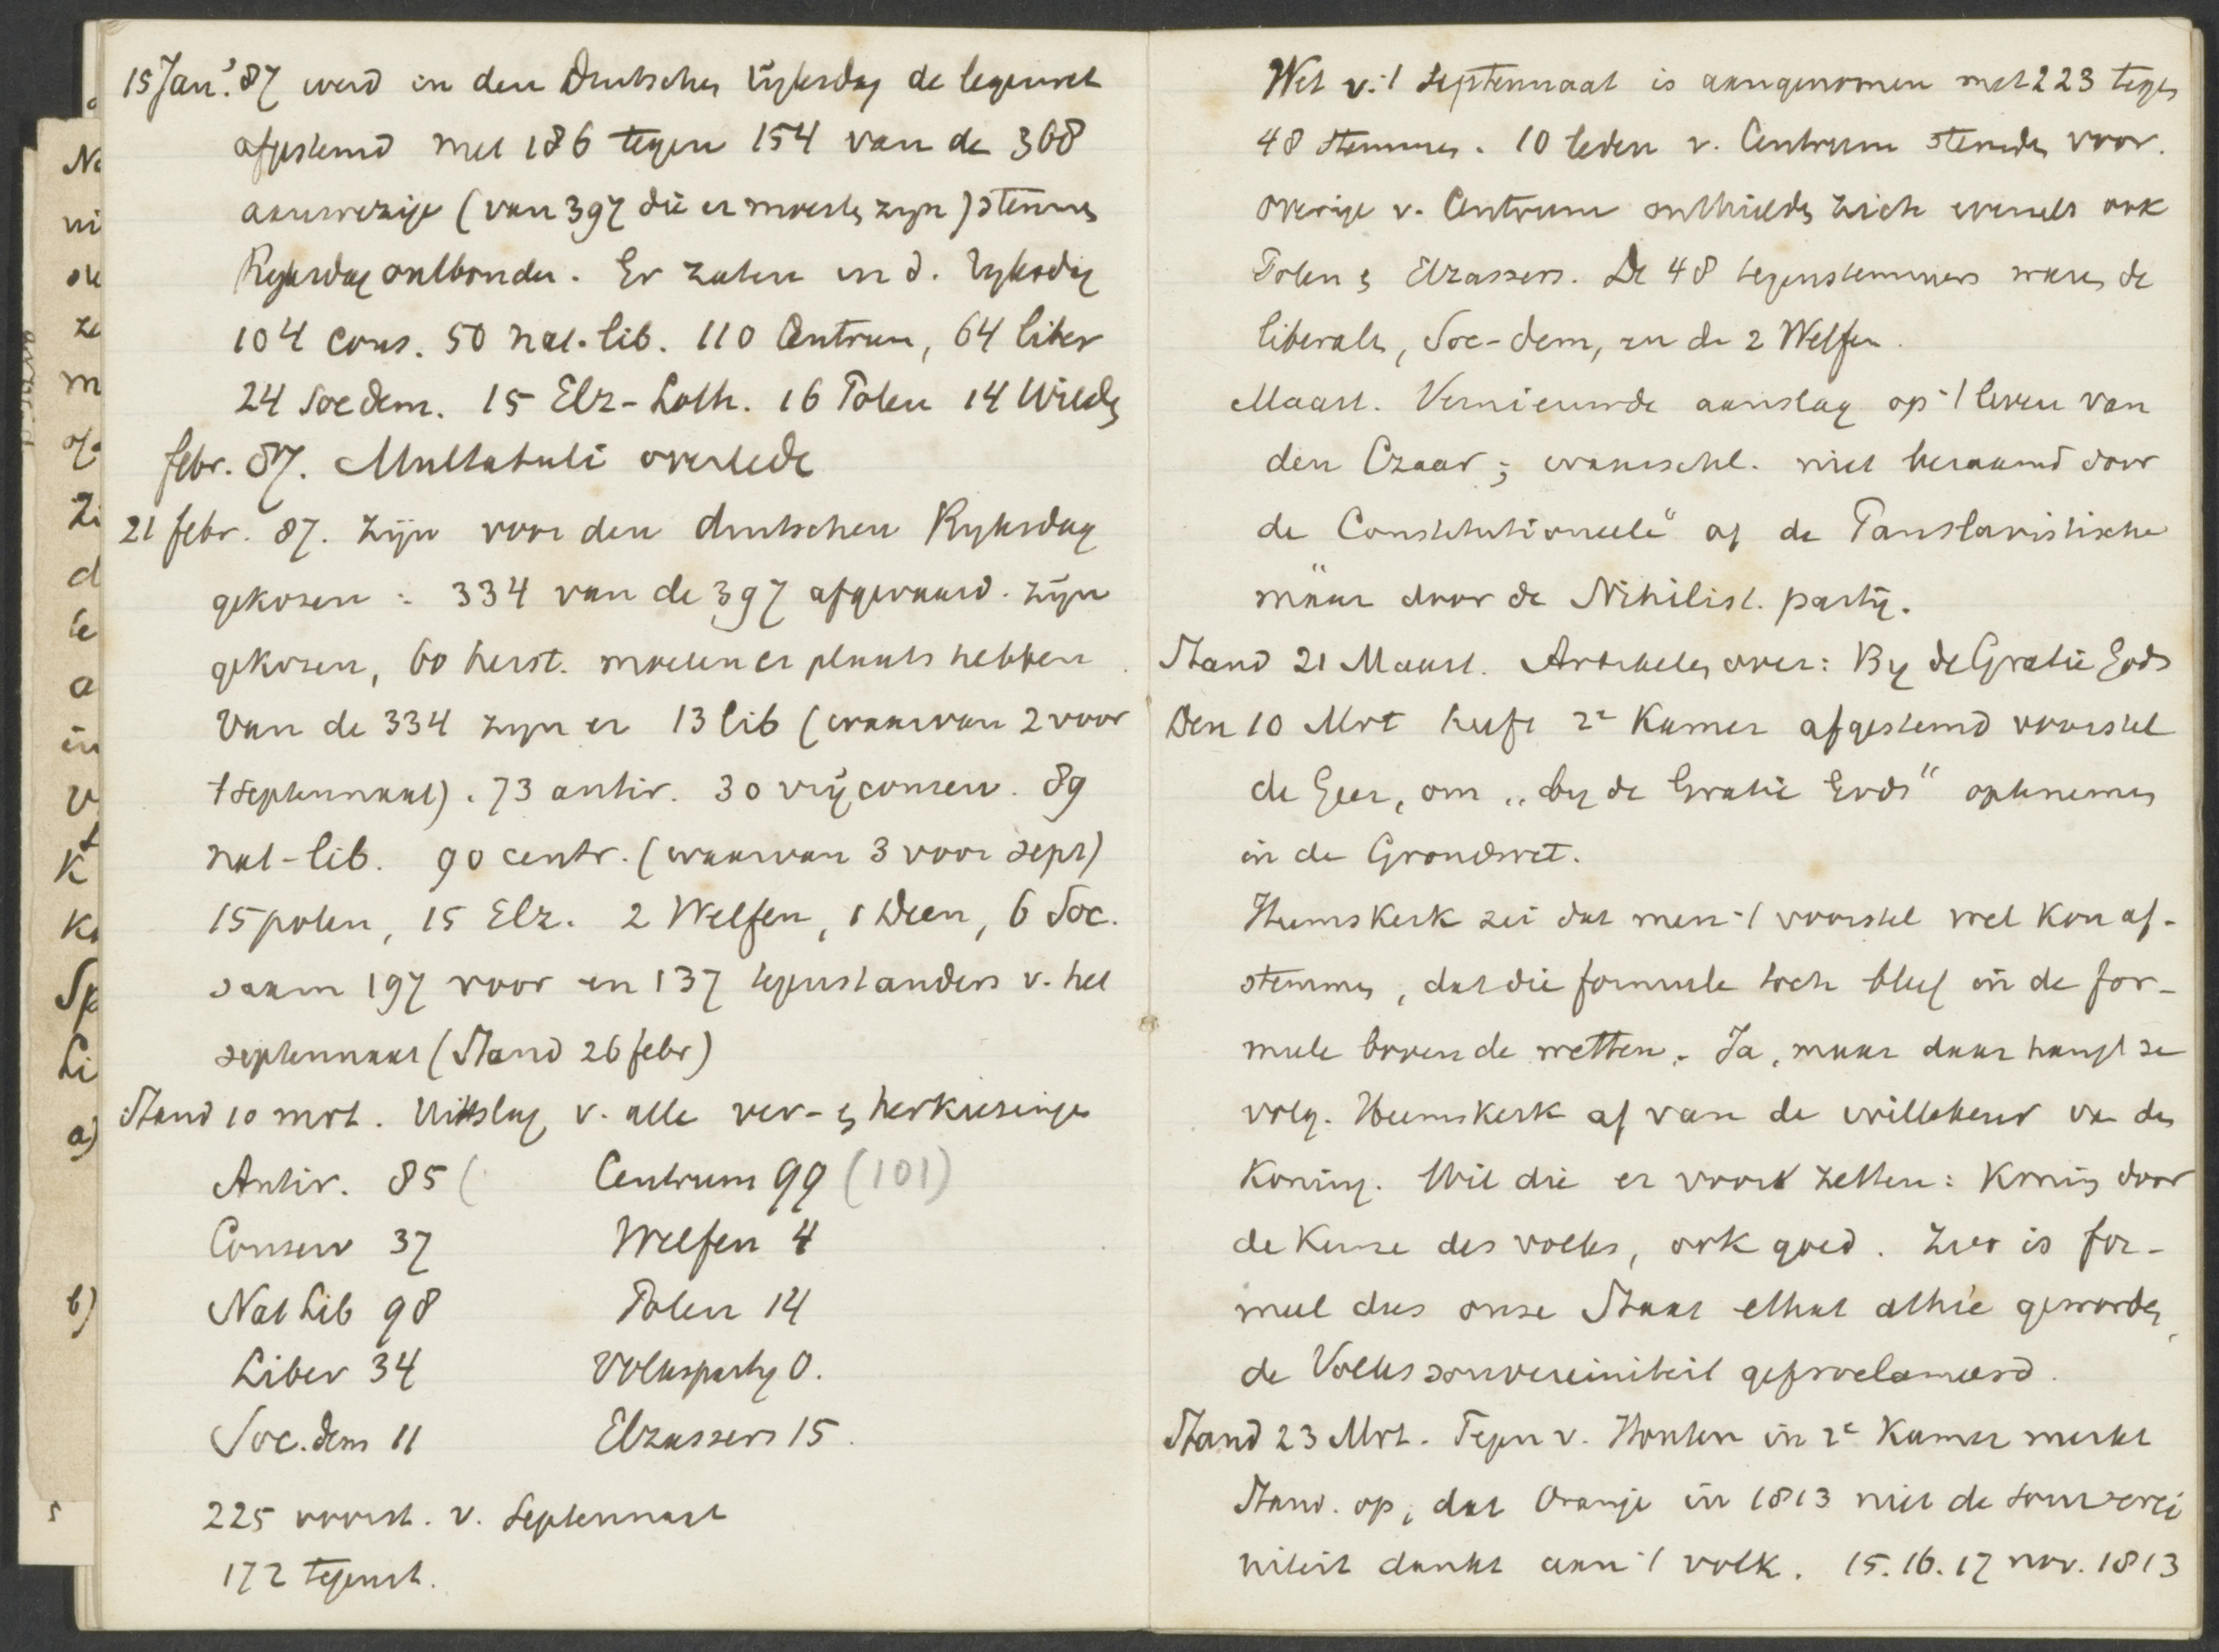 15 Jan. '87 werd in den Duitschen Rijksdag de legerwet
afgestemd met 186 tegen 154 van de 368
aanwezige (van 397 die er moesten zijn) stemmen
Ryksdag ontbonden. Er zaten in d. Ryksdag
104 cons. 50 nat-lib. 110 Centrum, 64 liber
24 Socdem. 15 Elz-Loth. 16 Polen 14 Wilden
febr. 87. Multatuli overlede
21 febr. 87. Zijn voor den duitschen Ryksdag
gekozen : 334 van de 397 afgevaard. zijn
gekozen, 60 herst. moeten er plaats hebben.
Van de 334 zyn er 13 lib (waarvan 2 voor
t septennaat). 73 antir. 30 vrijconserv. 89
nat-lib. 90 centr. (waarvan 3 voor sept)
15 polen, 15 Elz. 2 Welfen, 1 Deen, 6 Soc.
saam 197 voor en 137 tegenstanders v. het
septennaat (Stand 26 febr)
Stand 10 mrt. Uitslag v. alle ver- en herkiezingen
Antir. 85 ( Centrum 99 (101)
Conserv 37 Welfen 4
Nat Lib 98 Polen 14
Liber 34 Volksparty 0.
Soc. dem 11 Elzassers 15.
225 voorst. v. Septennaat
172 tegenst.
Wet v. 't Septennaat is aangenomen met 223 tegen
48 stemmen. 10 leden v. Centrum stemden voor.
overige v. Centrum onthielden zich evenals ook
Polen en Elzassers. De 48 tegenstemmers waren de
liberalen, Soc-dem, en de 2 Welfen.
Maart. Vernieuwde aanslag op 't leven van
den Czaar; waarschl. niet beraamd door
de Constitutioneele of de Panslavistische
maar door de Nihilist. partij.
Stand 21 Maart. Artikelen over: By de Gratie Gods
Den 10 Mrt heeft 2e Kamer afgestemd voorstel
de Geer, om „by de Gratie Gods" optenemen
in de Grondwet.
Heemskerk zei dat men 't voorstel wel kon af-
stemmen, dat die formule toch bleef in de for-
mule boven de wetten. Ja, maar daar hangt ze
volg. Heemskerk af van de willekeur van den
Koning. Wil die er voor zetten: Koning door
de Keuze des volks, ook goed. Zoo is for-
meel dus onze Staat état athée geworden,
de Volkssouvereiniteit geproclameerd.
Stand 23 Mrt. Tegen v. Houten in 2e Kamer merkt
Stand. op, dat Oranje in 1813 niet de souverei
niteit dankt aan 't volk. 15. 16. 17 nov. 1813